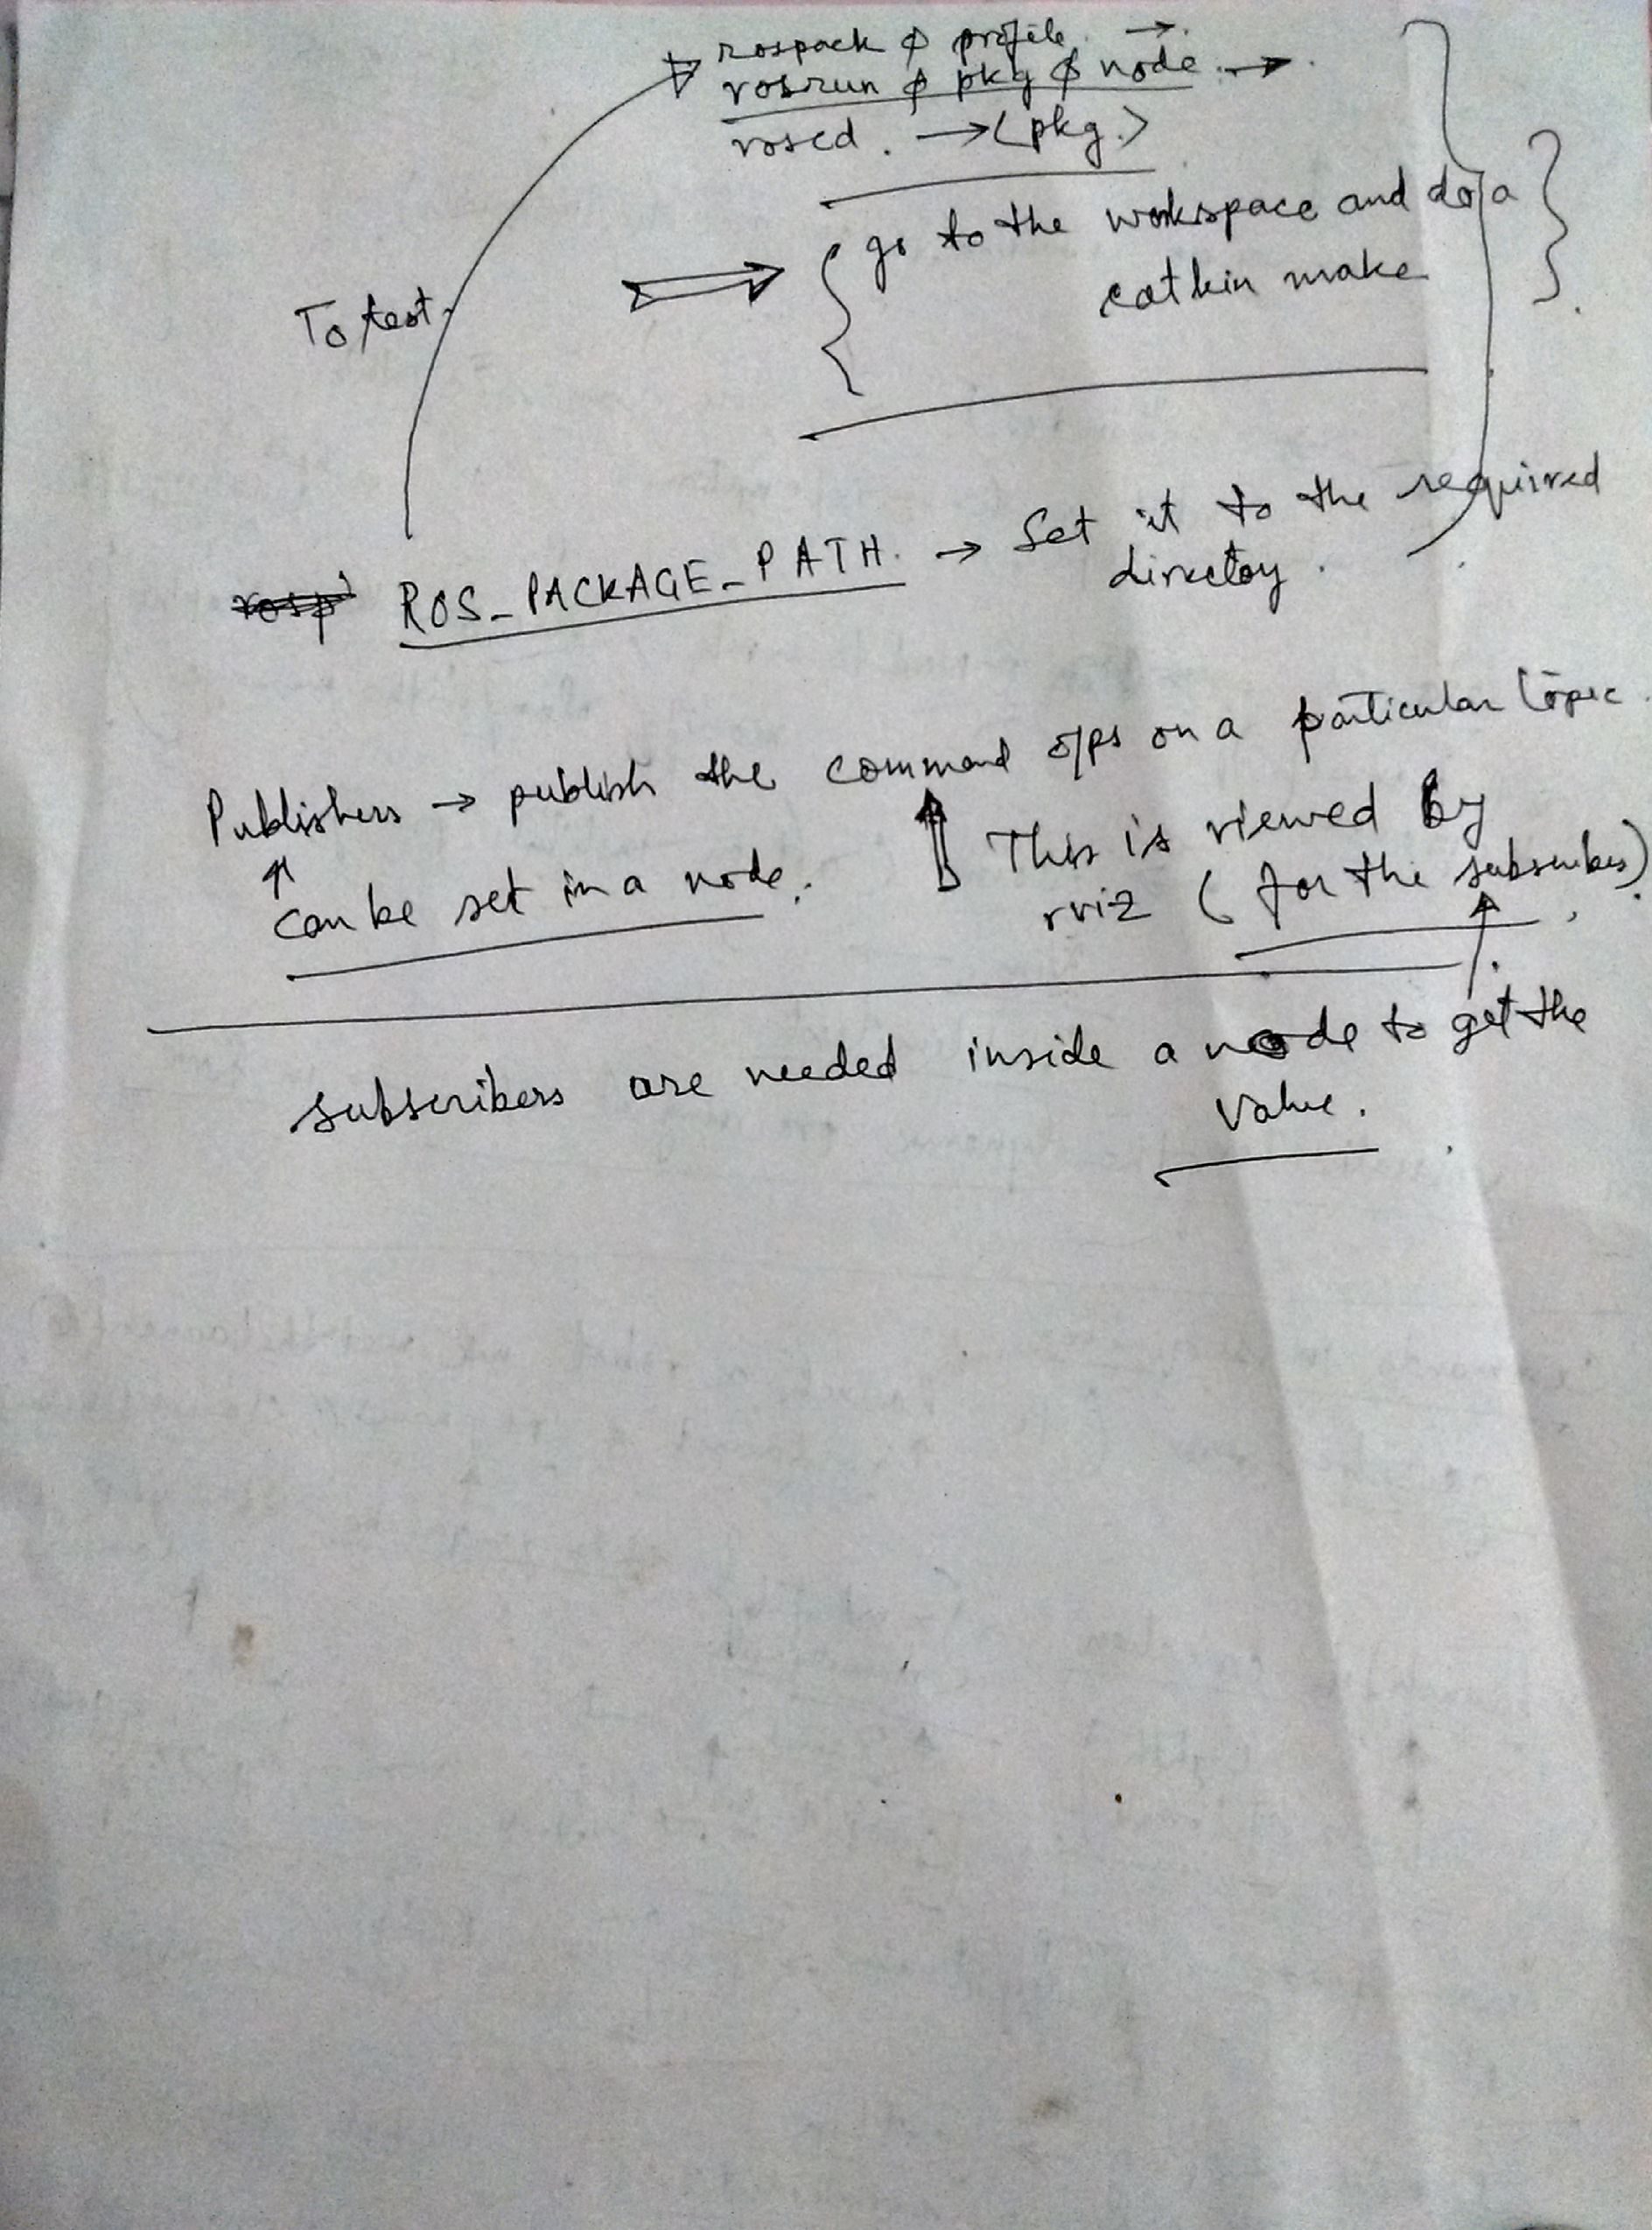 rospack ϕ profile →
rosrun ϕ pkg ϕ node →
roscd. → <pkg.>
go to the workspace and do a
catkin make
To test.
ROS_PACKAGE_PATH. → Set it to the required
directoy.
Publishers → publish the command o/ps on a particular topic.
↑ can be set in a node.
This is viewed by
rviz (for the subscribes).
subscribers are needed inside a node to get the
value.